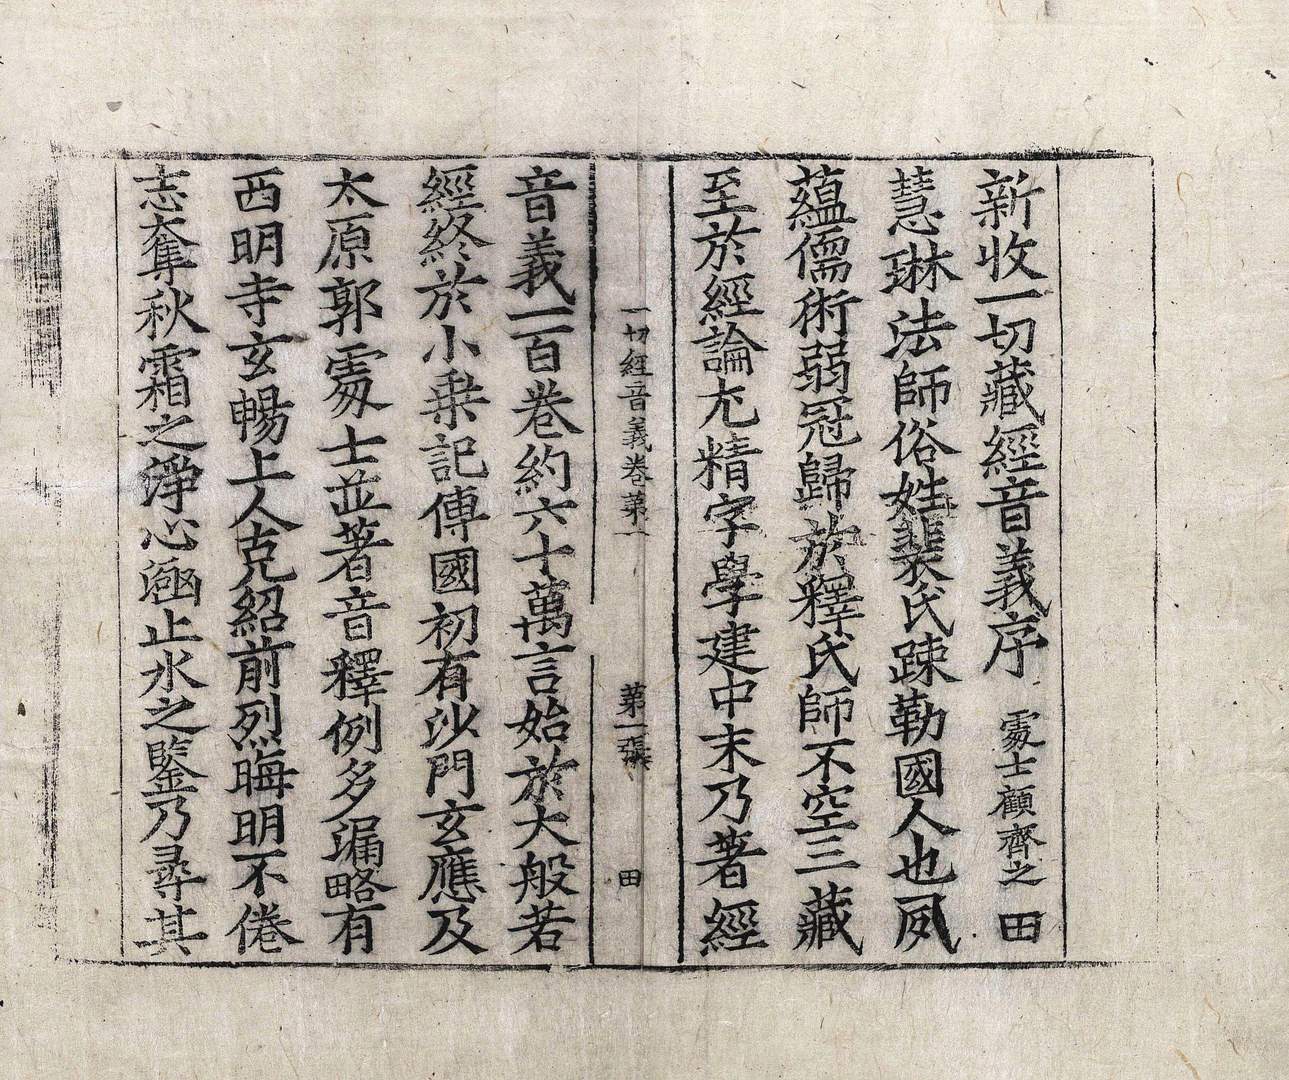 新收一切藏經音義序 處士顧齊之 田
慧琳法師俗姓裴氏踈勒國人也夙
蘊儒術弱冠歸於釋氏師不空三藏
至於經論尤精字學建中末乃著經
一切經音義卷第一 第一張 田
音義一百卷約六十萬言始於大般若
經終於小乗記傳國初有沙門玄應及
太原郭處士並著音釋例多漏略有
西明寺玄暢上人克紹前烈晦明不倦
志奪秋霜之淨心涵止水之鑒乃尋其